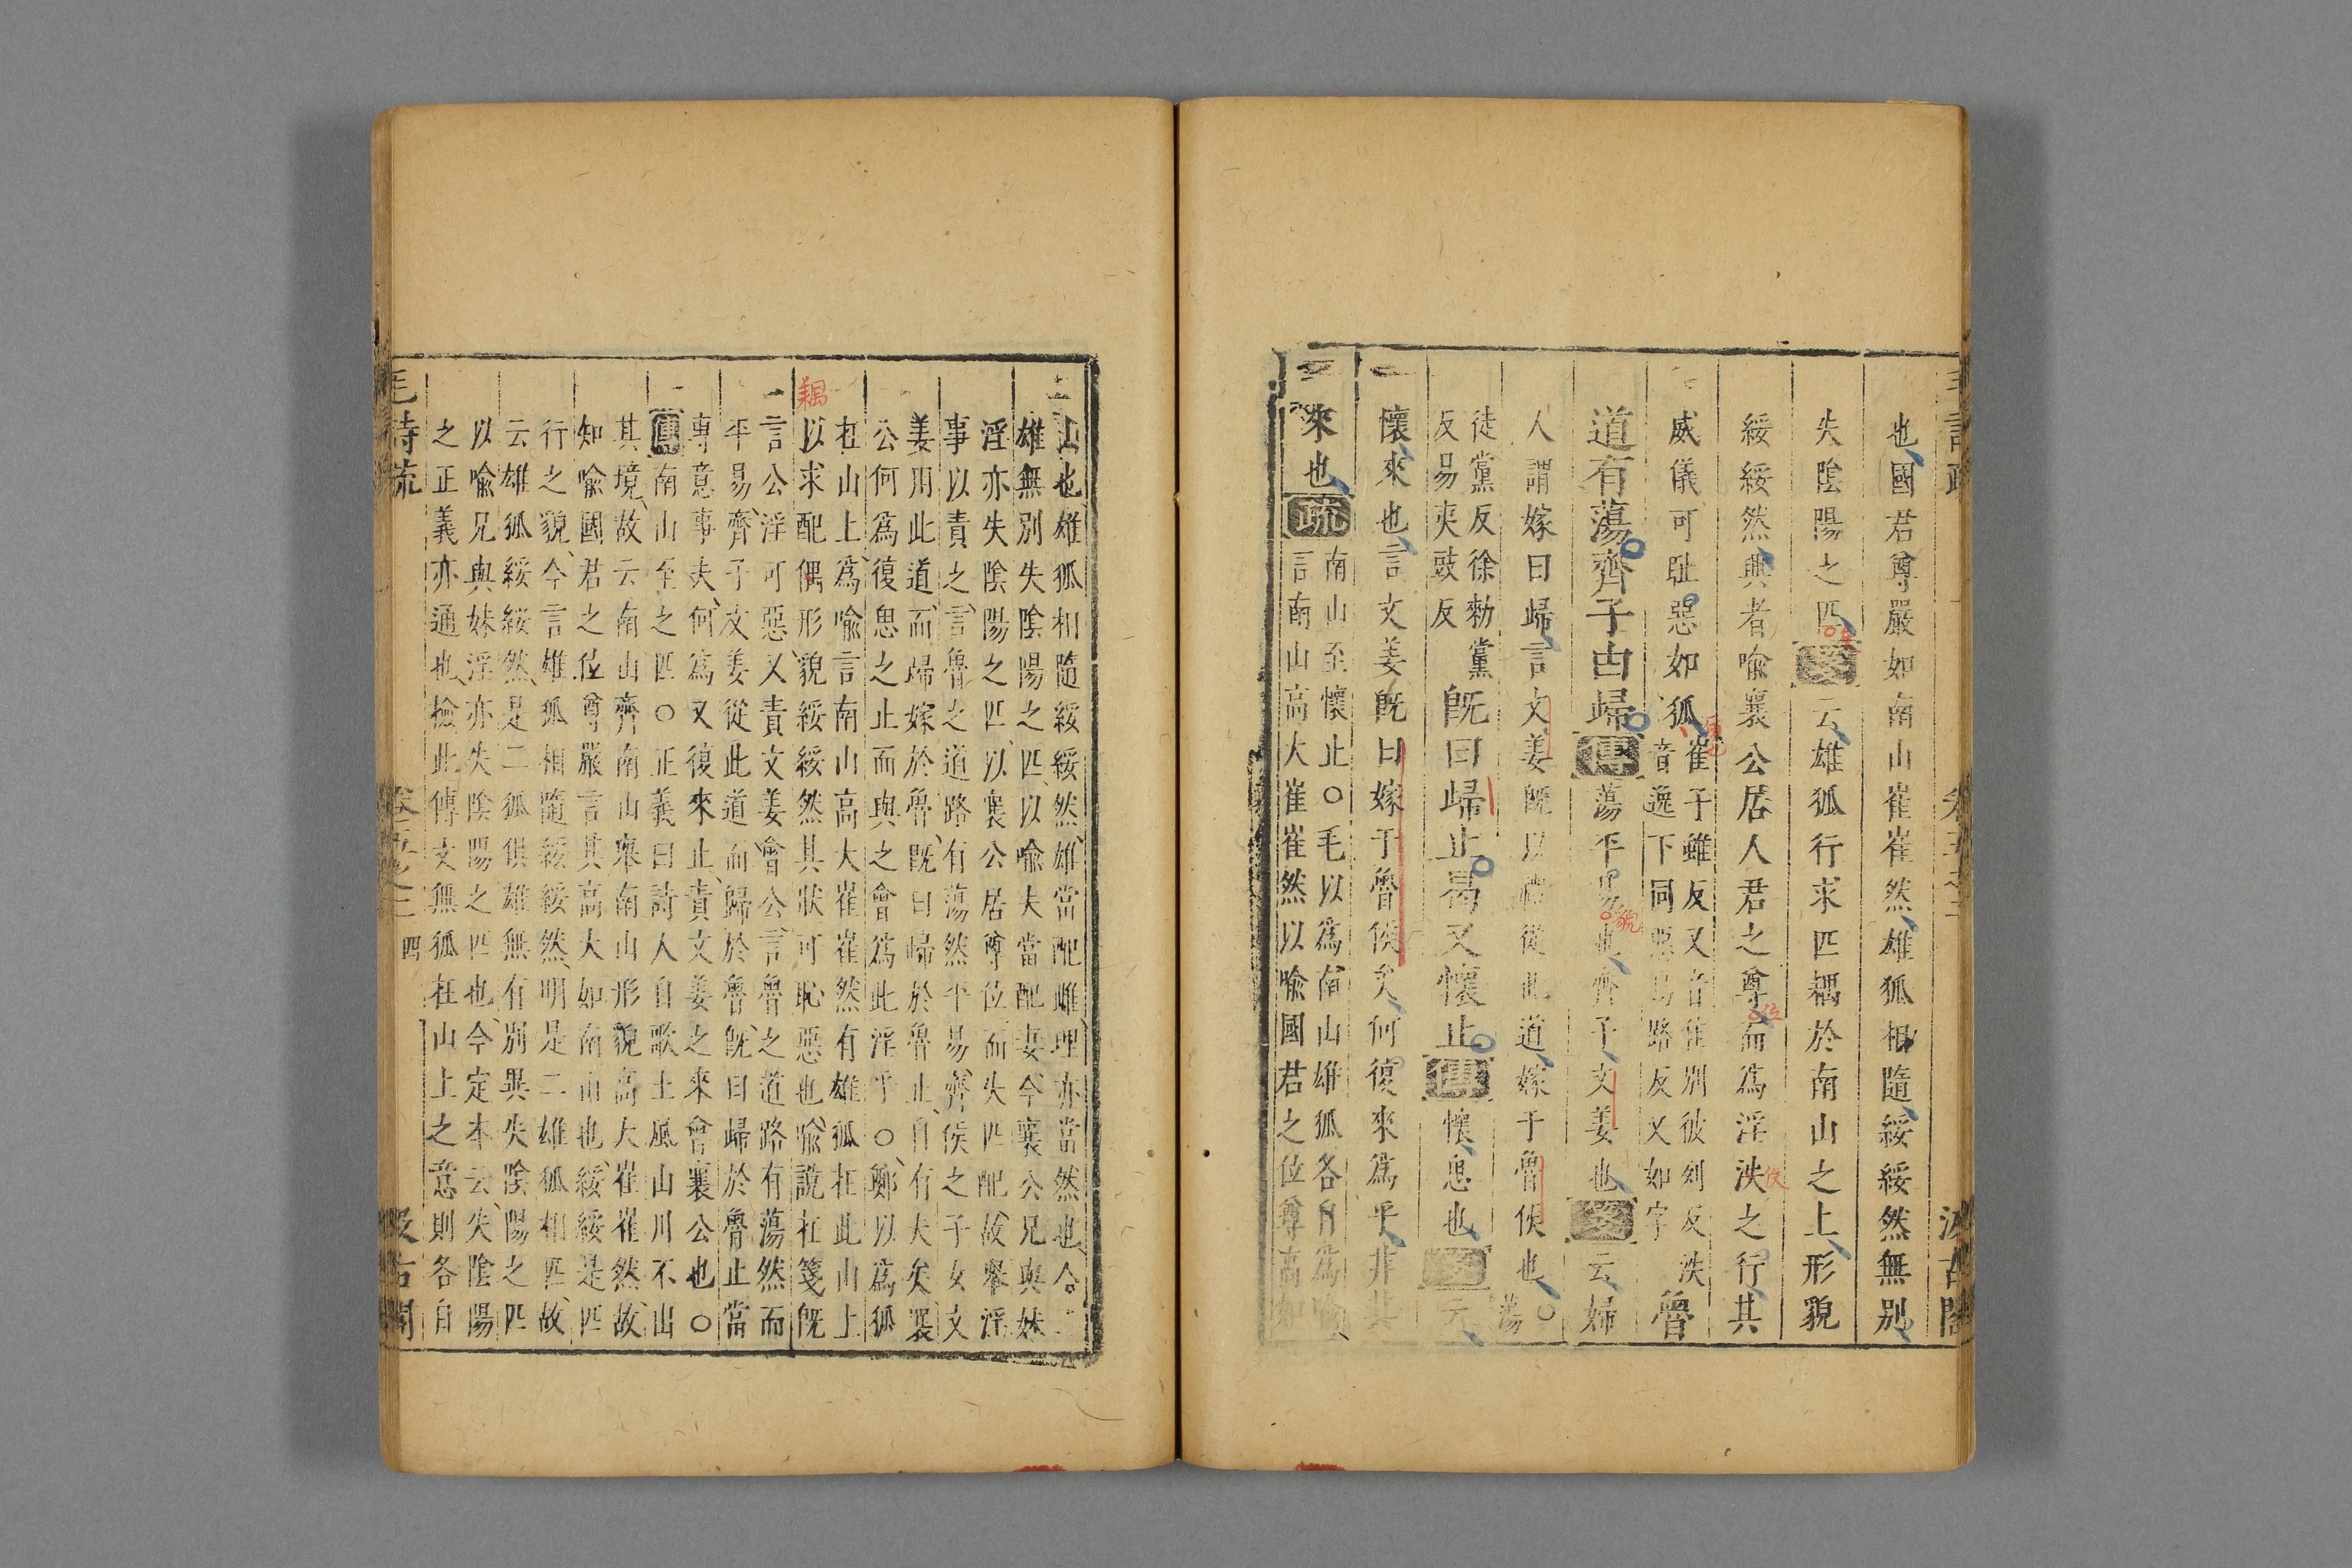 也國君尊嚴如南山崔崔然雄狐相隨綏綏然無別
失陰陽之匹箋云雄狐行求匹耦於南山之上形貌
綏綏然興者喻襄公居人君之尊而爲淫泆之行其
威儀可耻惡如狐
崔子雖反又音隹別彼列反泆
音逸下同惡烏路反又如字
魯
道有蕩齊子由歸傳蕩平易也齊子文姜也箋云婦
人謂嫁曰歸言文姜旣以禮從此道嫁于魯侯也
○蕩
徒黨反徐勑黨
反易夷豉反
旣曰歸止曷又懷止傳懷思也箋云
懷來也言文姜旣曰嫁于魯侯矣何復來爲乎非其
來也疏
南山至懷止○毛以爲南山雄狐各自爲喻
言南山高大崔崔然以喻國君之位尊高如
山也雄狐相隨綏綏然雄當配雌理亦當然也今二
雄無別失陰陽之匹以喻夫當配妻今襄公兄與妹
淫亦失陰陽之匹以襄公居尊位而失匹配故舉淫
事以責之言魯之道路有蕩然平易齊侯之子女文
姜用此道而歸嫁於魯旣曰歸於魯止自有夫矣襄
公何爲復思之止而與之會爲此淫乎○鄭以爲狐
在山上爲喻言南山高大崔崔然有雄狐在此山上
以求配偶形貌綏綏然其狀可恥惡也喻說在箋旣
耦
言公淫可惡又責文姜會公言魯之道路有蕩然而
平易齊子文姜從此道而歸於魯旣曰歸於魯止當
專意事夫何爲又復來止責文姜之來會襄公也○
傳南山至之匹○正義曰詩人自歌土風山川不出
其境故云南山齊南山舉南山形貌高大崔崔然故
知喻國君之位尊嚴言其高大如南山也綏綏是匹
行之貌今言雄狐相隨綏綏然明是二雄狐相匹故
云雄狐綏綏然是二狐俱雄無有別異失陰陽之匹
以喻兄與妹淫亦失陰陽之匹也今定本云失陰陽
之正義亦通也檢此傳文無狐在山上之意則各自
毛詩疏
卷五之二
四
汲古閣